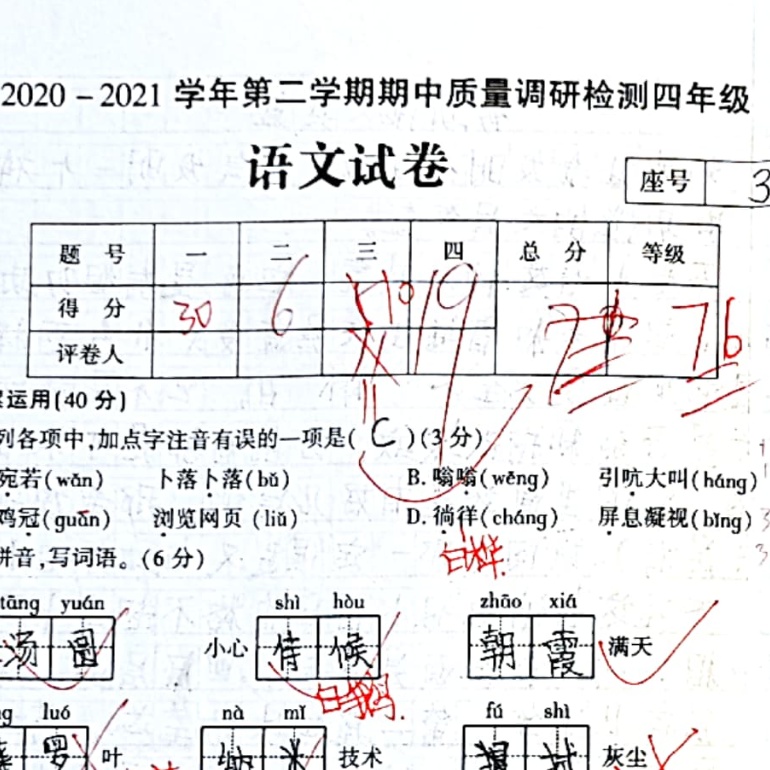 2020-2021 学年第二学期期中质量调研检测四年级
语文试卷
座号 3
题 号 一 二 三 四 总 分 等级
得 分 30 6 10 19 76
评卷人
运用(40 分)
列各项中,加点字注音有误的一项是( C )(3 分)
宛若(wǎn) 卜落卜落(bǔ) B. 嗡嗡(wēng) 引吭大叫(háng)
鸡冠(guān) 浏览网页 (liú) D. 徜徉(cháng) 屏息凝视(bǐng)
拼音,写词语。(6 分)
tāng yuán shì hòu zhāo xiá
汤圆 小心 侍候 朝霞 满天
luó nà mǐ fú shì
罗 叶 纳米 技术 拂拭 灰尘